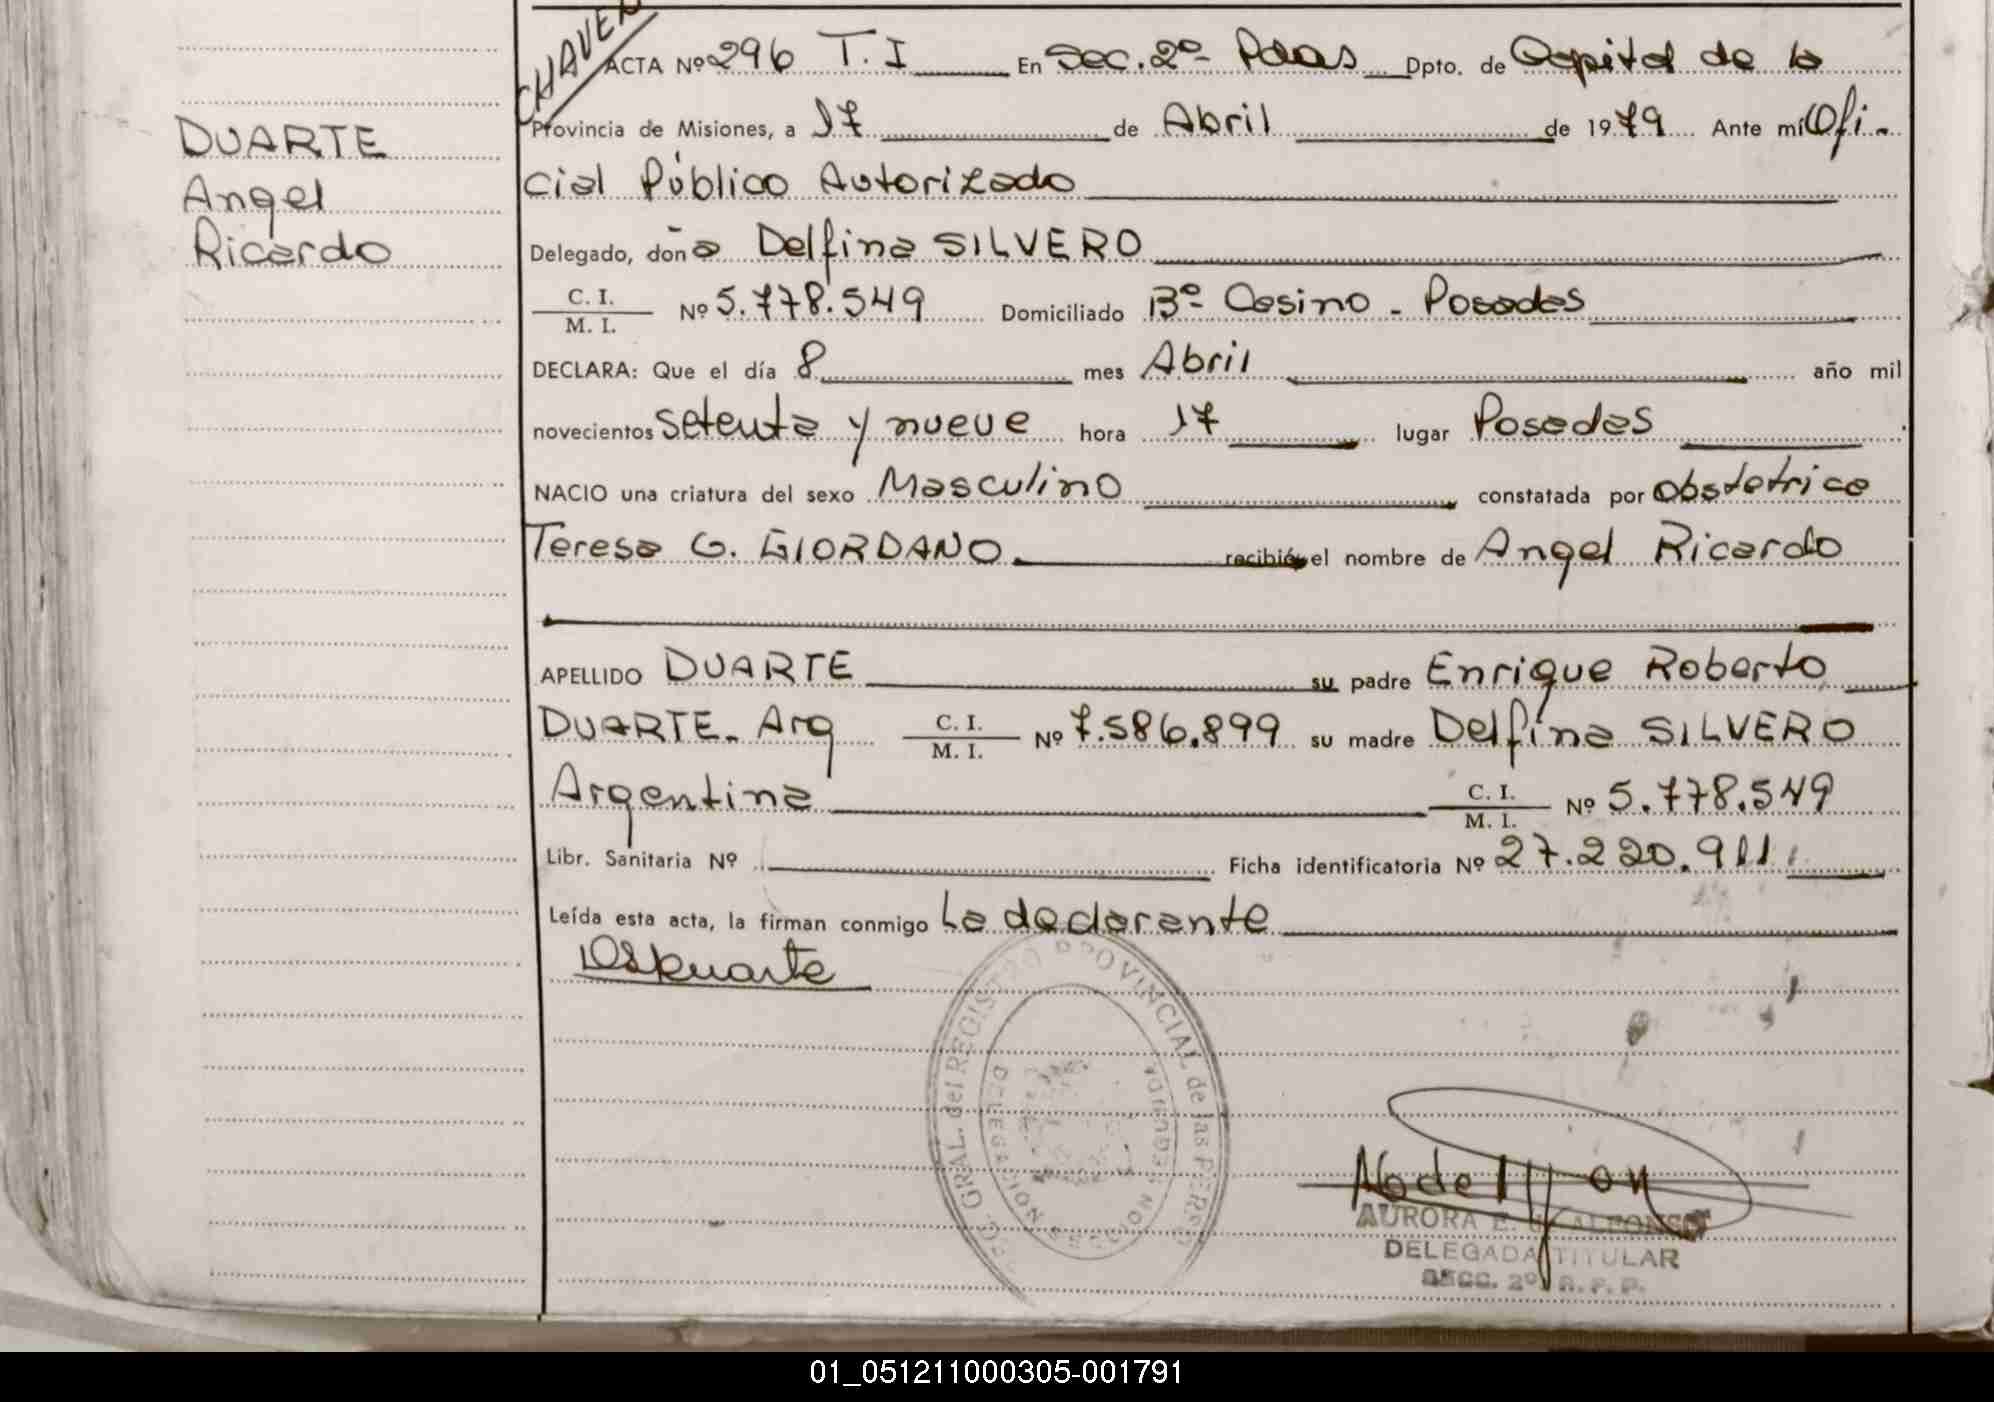 CHAVEN
ACTA Nº 296 T. I En Sec. 2º Pdas Dpto. de Capital de la
Provincia de Misiones, a 17 de Abril de 1979 Ante mí Ofi-
cial Público Autorizado
Delegado, doña Delfina SILVERO
C. I. / M. I. Nº 5.778.549 Domiciliado Bº Casino - Posadas
DECLARA: Que el día 8 mes Abril año mil
novecientos setenta y nueve hora 17 lugar Posadas
NACIO una criatura del sexo Masculino constatada por obstetrica
Teresa G. GIORDANO recibió el nombre de Angel Ricardo
APELLIDO DUARTE su padre Enrique Roberto
DUARTE - Arg C. I. / M. I. Nº 7.586.899 su madre Delfina SILVERO
Argentina C. I. / M. I. Nº 5.778.549
Libr. Sanitaria Nº Ficha identificatoria Nº 27.220.911
Leída esta acta, la firman conmigo La declarante
DUARTE
Angel
Ricardo
GRAL. del REGISTRO PROVINCIAL de las PERS
DELEGACION
AURORA E. ALFONSO
DELEGADA TITULAR
SECC. 2º R. P. P.
01_051211000305-001791